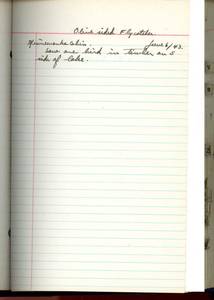 Olive sided Flycatcher.
June 6/43.
Saw one bird in timber on S
side of lake.